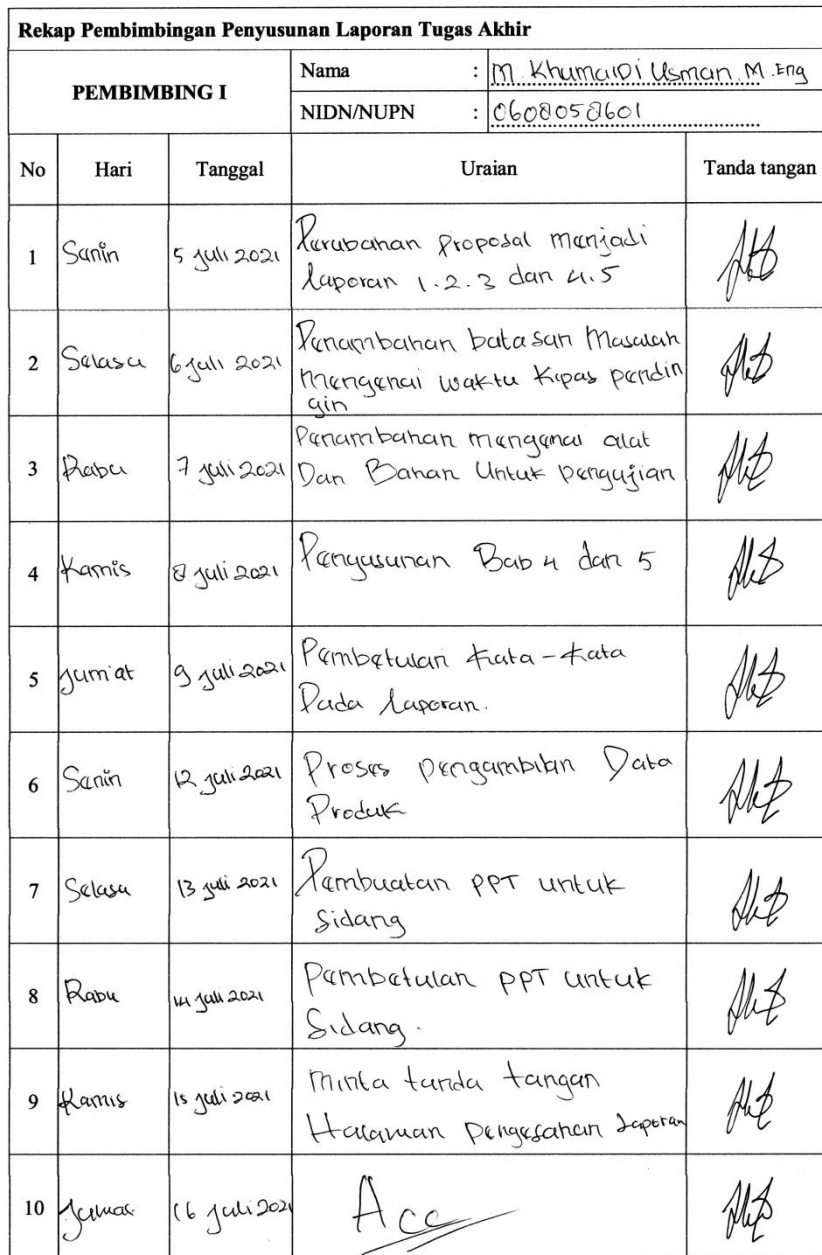 Rekap Pembimbingan Penyusunan Laporan Tugas Akhir
PEMBIMBING I
Nama : M. Khumaidi Usman. M.Eng
NIDN/NUPN : 0608058601
No Hari Tanggal Uraian Tanda tangan
1 Senin 5 Juli 2021 Perubahan proposal menjadi
laporan 1.2.3 dan 4.5
2 Selasa 6 juli 2021 Penambahan batasan Masalah
mengenai waktu kipas pendin
gin
3 Rabu 7 juli 2021 Penambahan mengenai alat
Dan Bahan Untuk pengujian
4 Kamis 8 juli 2021 Penyusunan Bab 4 dan 5
5 Jum'at 9 juli 2021 Pembetulan kata-kata
Pada laporan.
6 Senin 12 juli 2021 Proses pengambilan Data
Produk
7 Selasa 13 juli 2021 Pembuatan PPT untuk
Sidang
8 Rabu 14 juli 2021 Pembetulan PPT untuk
Sidang.
9 Kamis 15 juli 2021 Minta tanda tangan
Halaman pengesahan Laporan
10 16 juli 2021 Acc